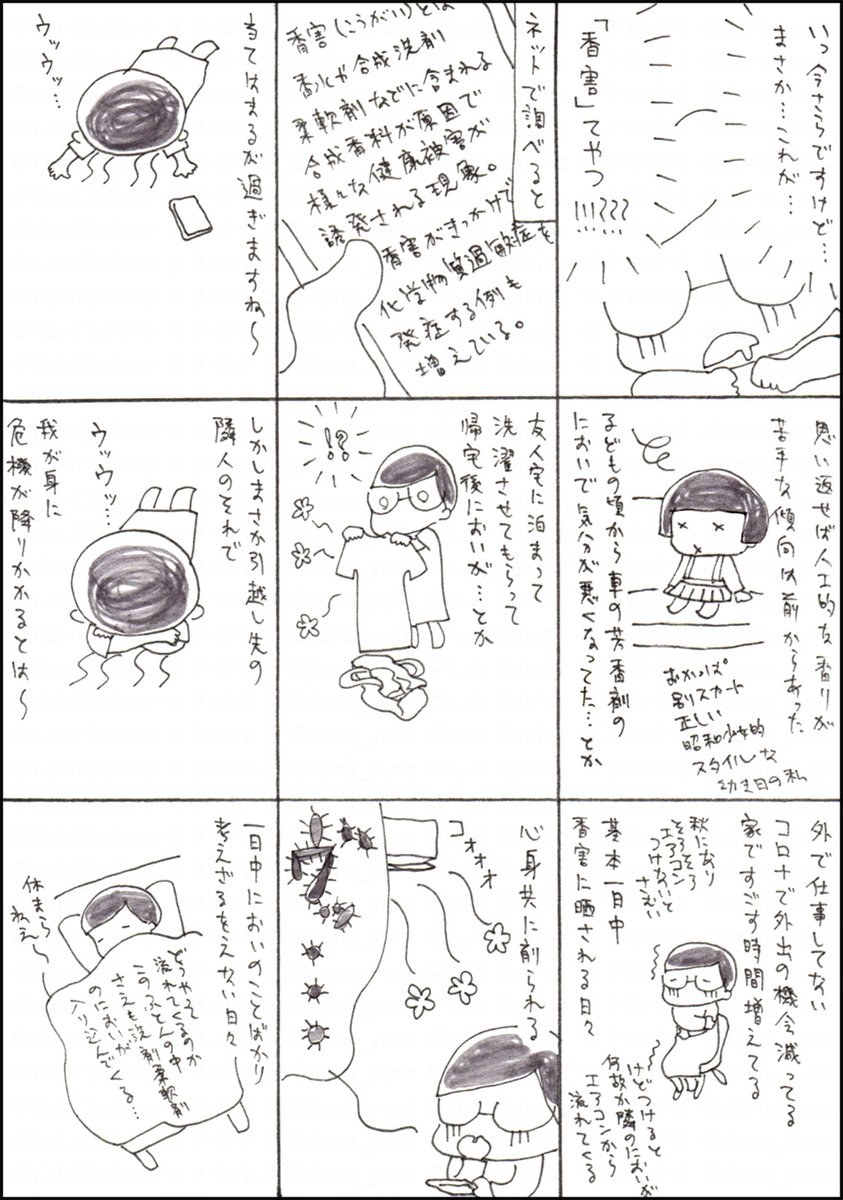 いっ今さらですけど…
まさか…これが…
「香害」てやつ
!!!???
ネットで調べると
香害(こうがい)とは
香水や合成洗剤
柔軟剤などに含まれる
合成香料が原因で
様々な健康被害が
誘発される現象。
香害がきっかけで
化学物質過敏症も
発症する例も
増えている。
当てはまるが過ぎますね〜
ウッウッ…
思い返せば人工的な香りが
苦手な傾向は前からあった
おかっぱ
吊スカート
正しい
昭和少女的
スタイルな
幼き日の私
子どもの頃から車の芳香剤の
においで気分が悪くなってた…とか
友人宅に泊まって
洗濯させてもらって
帰宅後においが…とか
!?
しかしまさか引越し先の
隣人のそれで
ウッウッ…
我が身に
危機が降りかかるとは〜
外で仕事してない
コロナで外出の機会減ってる
家ですごす時間増えてる
秋になり
そろそろ
エアコン
つけないと
さむい
けどつけると
何故か隣のにおいが
エアコンから
流れてくる
基本一日中
香害に晒される日々
コォォオ
心身共に削られる
一日中においのことばかり
考えざるをえない日々
どうやって
流れてくるのか
このふとんの中
さえも洗剤柔軟剤
のにおいが
入りこんでくる…
休まら
ねえ〜